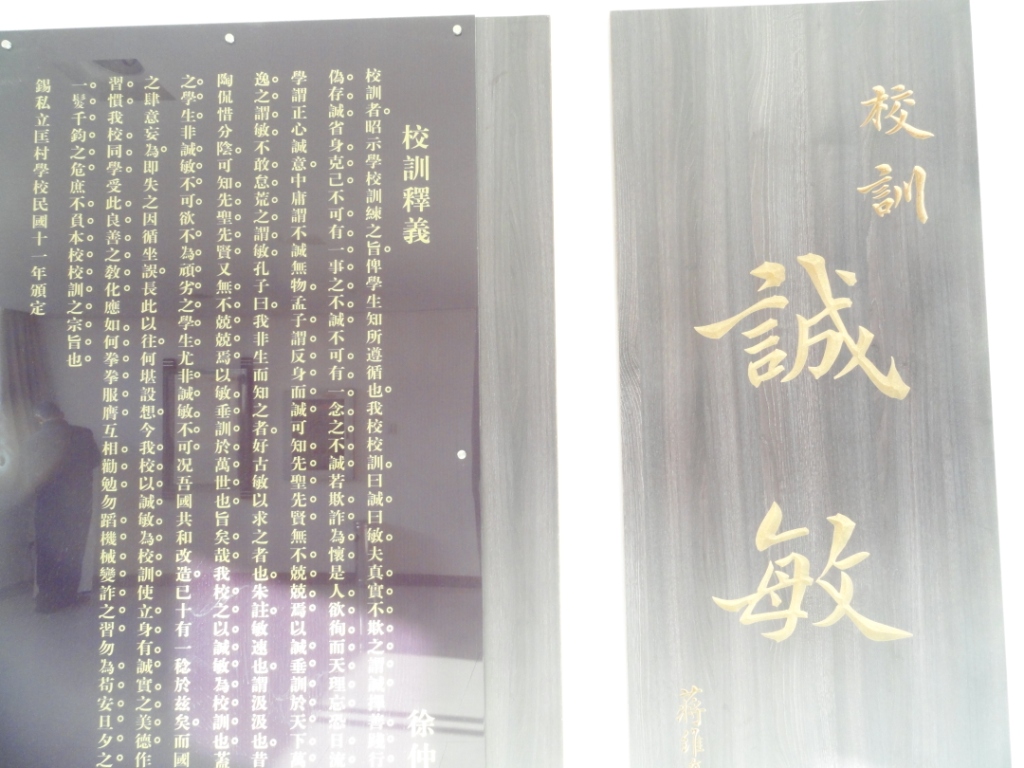 校訓
誠
敏
校訓釋義
徐仲
校訓者昭示學校訓練之旨俾學生知所遵循也我校校訓曰誠曰敏夫真實不欺之謂誠擇善
偽存誠省身克己不可有一事之不誠不可有一念之不誠若欺詐為懷是人欲徇而天理忘
學謂正心誠意中庸謂不誠無物孟子謂反身而誠可知先聖先賢無不兢兢焉以誠垂訓於天下萬
逸之謂敏不敢怠荒之謂敏孔子曰我非生而知之者好古敏以求之者也朱註敏速也謂汲汲也昔
陶侃惜分陰可知先聖先賢又無不兢兢焉以敏垂訓於萬世也旨矣哉我校之以誠敏為校訓也蓋
之學生非誠敏不可欲不為頑劣之學生尤非誠敏不可况吾國共和改造已十有一稔於兹矣而國
之肆意妄為即失之因循坐誤長此以往何堪設想今我校以誠敏為校訓使立身有誠實之美德作
習慣我校同學受此良善之敎化應如何拳拳服膺互相勸勉勿蹈機械變詐之習勿為苟安旦夕之
一髮千鈞之危庶不負本校校訓之宗旨也
錫私立匡村學校民國十一年頒定